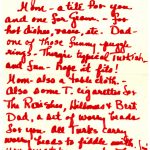 Mom - a tile for you
and one for Gram - for
hot dishes, vases, etc. Dad -
one of those funny puzzle
rings. They're typical turkish
and fun - hope it fits!
Mom - also a table cloth -
Also some T. cigarettes for
The Hillmas & Bert
Dad, a set of worry beads
for you all Turks carry
worry beads to fiddle with.